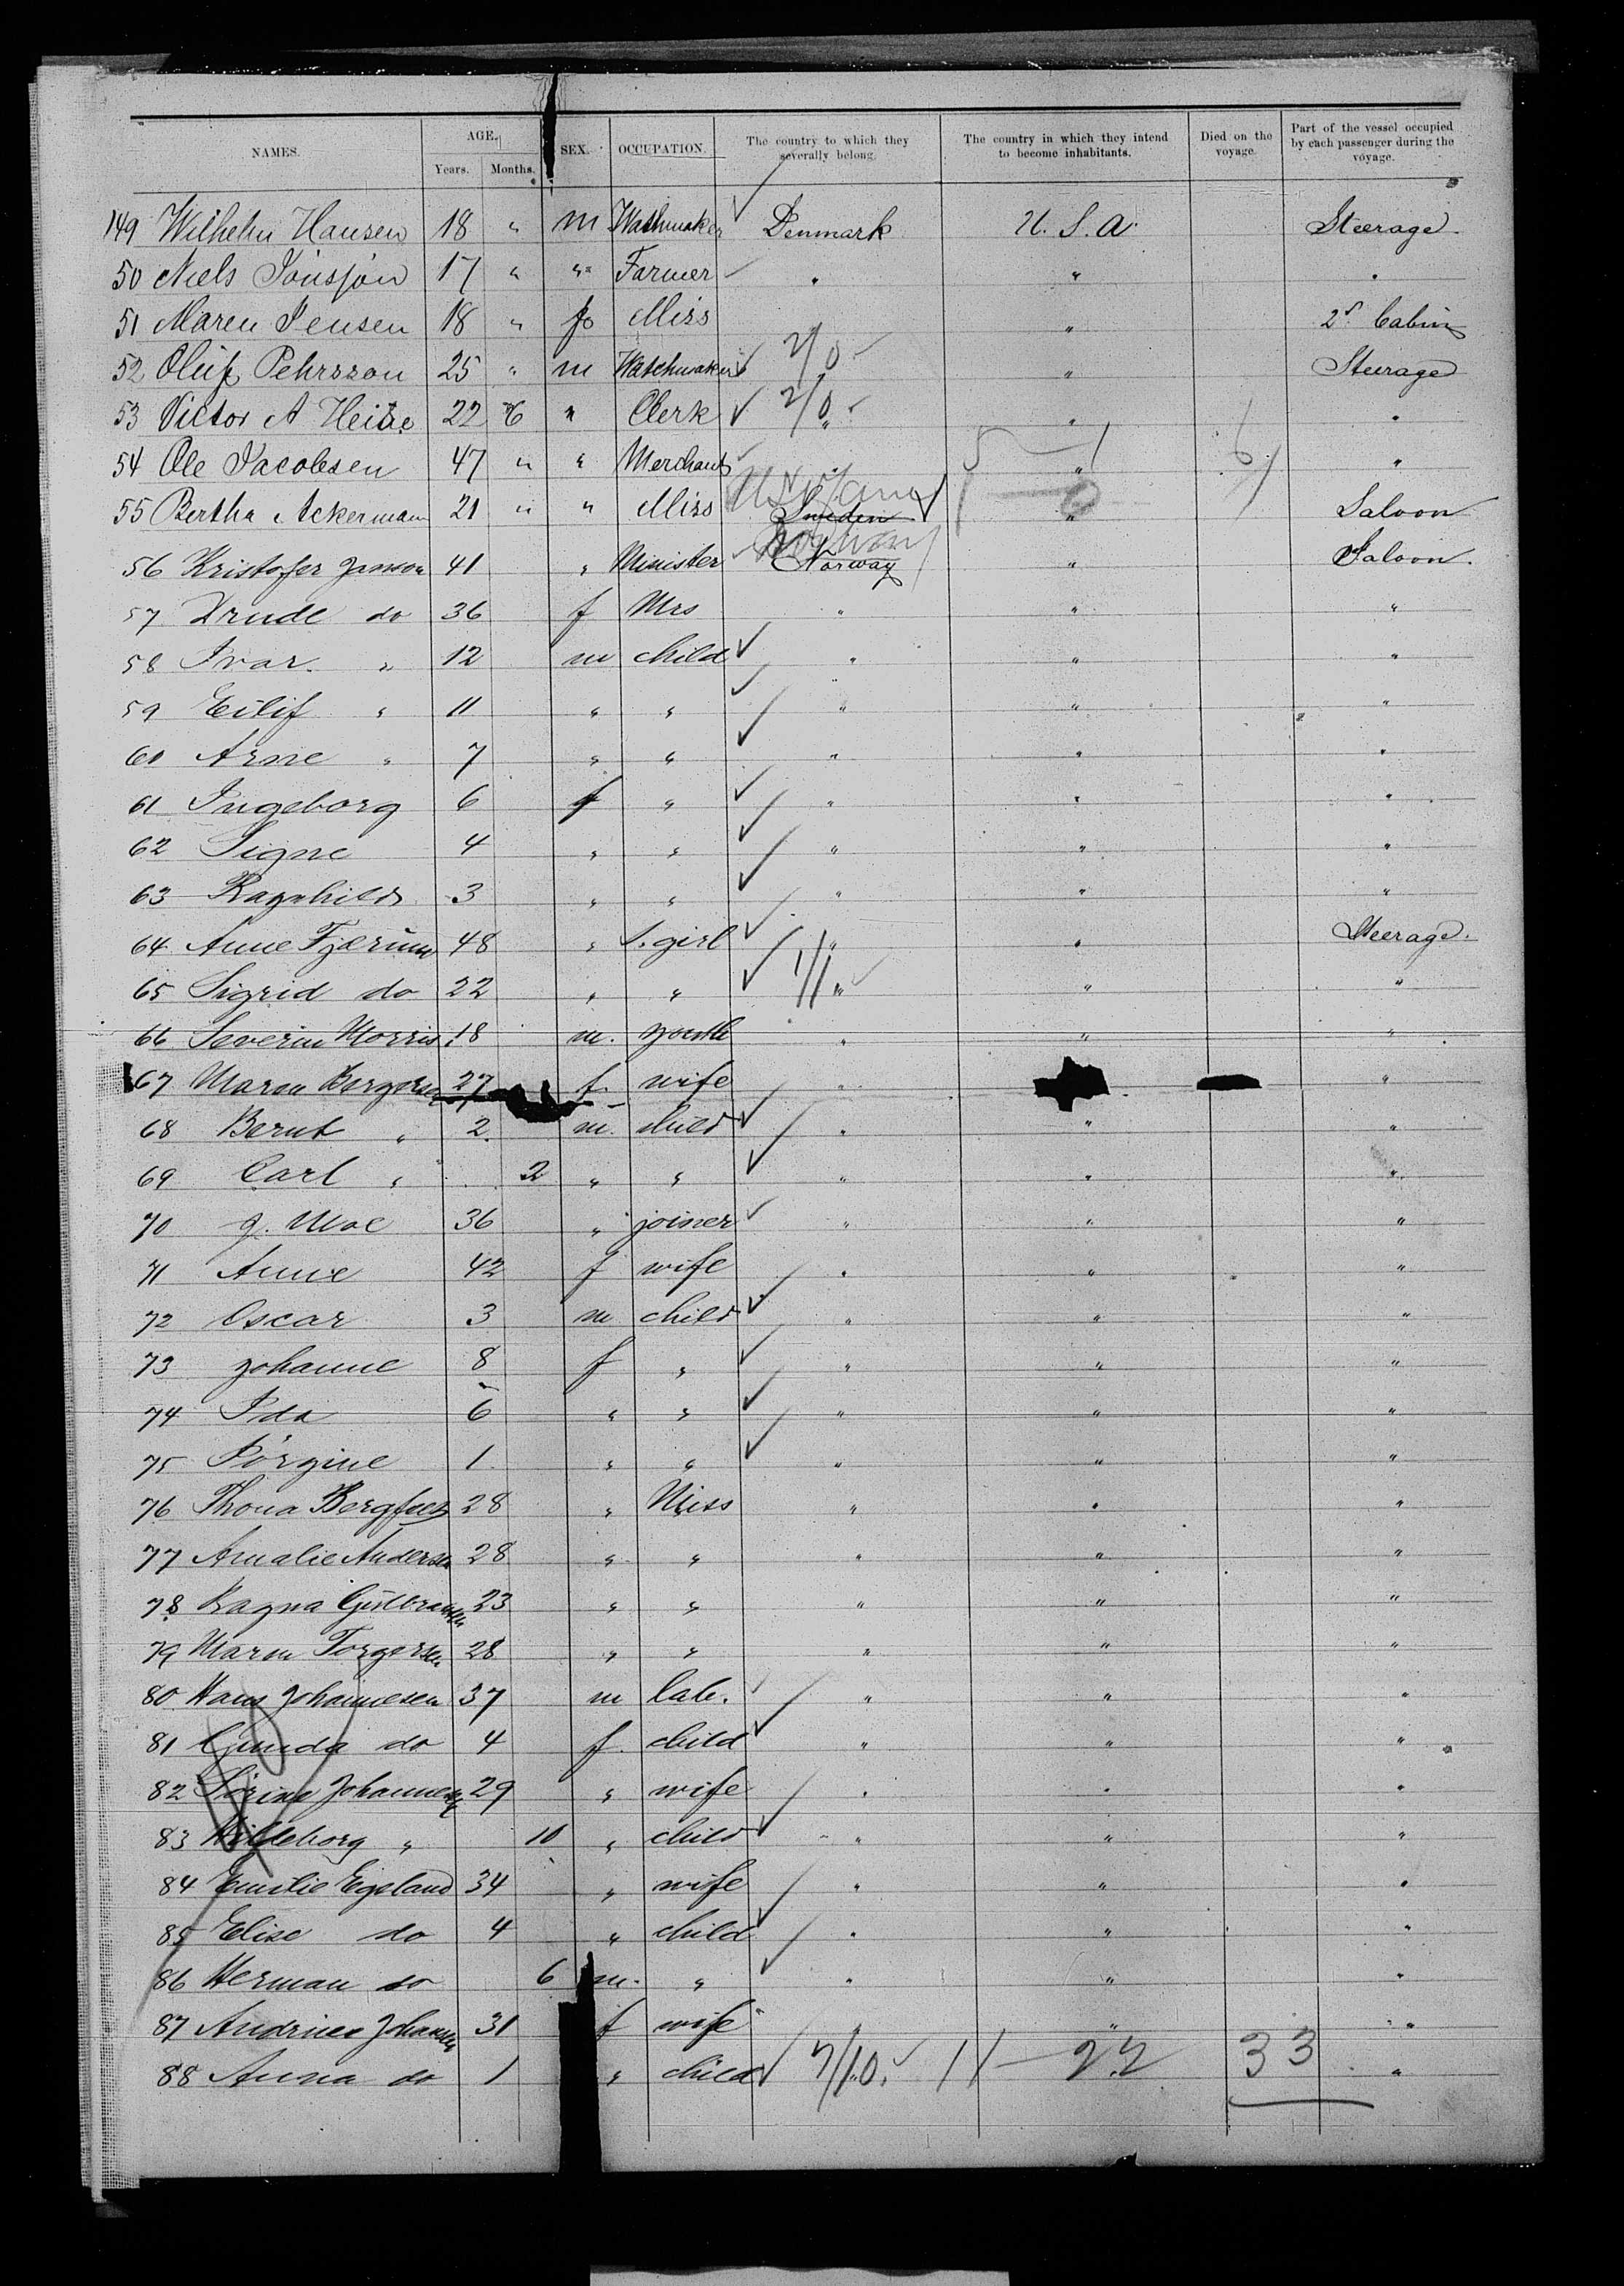 NAMES. AGE. SEX. OCCUPATION. The country to which they severally belong. The country in which they intend to become inhabitants. Died on the voyage. Part of the vessel occupied by each passenger during the voyage.
Years. Months.
149 Wilhelm Hansen 18 " m Wathmaker Denmark U.S.A. Steerage
50 Niels Jönsson 17 " " Farmer " " "
51 Maren Jensen 18 " fe Miss " 2d Cabin
52 Oluf Pehrsson 25 " m Watchmaker 2/0 " " Steerage
53 Victor A Heise 22 6 " Clerk 2/0 " " "
54 Ole Jacobsen 47 " " Merchant " " "
55 Bertha Ackerman 21 " " Miss Sweden " Saloon
56 Kristofer Janson 41 " Minister Norway " Saloon.
57 Drude do 36 f Mrs " " "
58 Ivar. " 12 m child " " "
59 Eilif " 11 " " " " "
60 Arne " 7 " " " " "
61 Ingeborg 6 f " " " "
62 Signe 4 " " " " "
63 Ragnhild 3 " " " " "
64 Anne Fjerum 48 " S. girl " " Steerage.
65 Sigrid do 22 " " 1/1 " " "
66 Severin Morris 18 m. youth " " "
67 Maren Borgersen 27 f. wife " "
68 Bernt " 2. m. child " " "
69 Carl " 2 " " " " "
70 J. Moe 36 " joiner " " "
71 Anne 42 f wife " " "
72 Oscar 3 m child " " "
73 Johanne 8 f " " " "
74 Ida 6 " " " " "
75 Jörgine 1 " " " " "
76 Thona 28 " Miss " " "
77 Amalie Andersen 28 " " " " "
78 Ragna Gulbrandsen 23 " " " " "
79 Maren Torgersen 28 " " " " "
80 Hans Johannesen 37 m lab. " " "
81 Gunda do 4 f. child " " "
82 Sörine Johannesen 29 " wife " " "
83 " 10 " child " " "
84 Emilie Egeland 34 " wife " " "
85 Elise do 4 " child " " "
86 Herman do 6 m. " " " "
87 Andrine Johansen 31 f wife " " "
88 Anna do 1 " child 7/10. 11 22 33 "